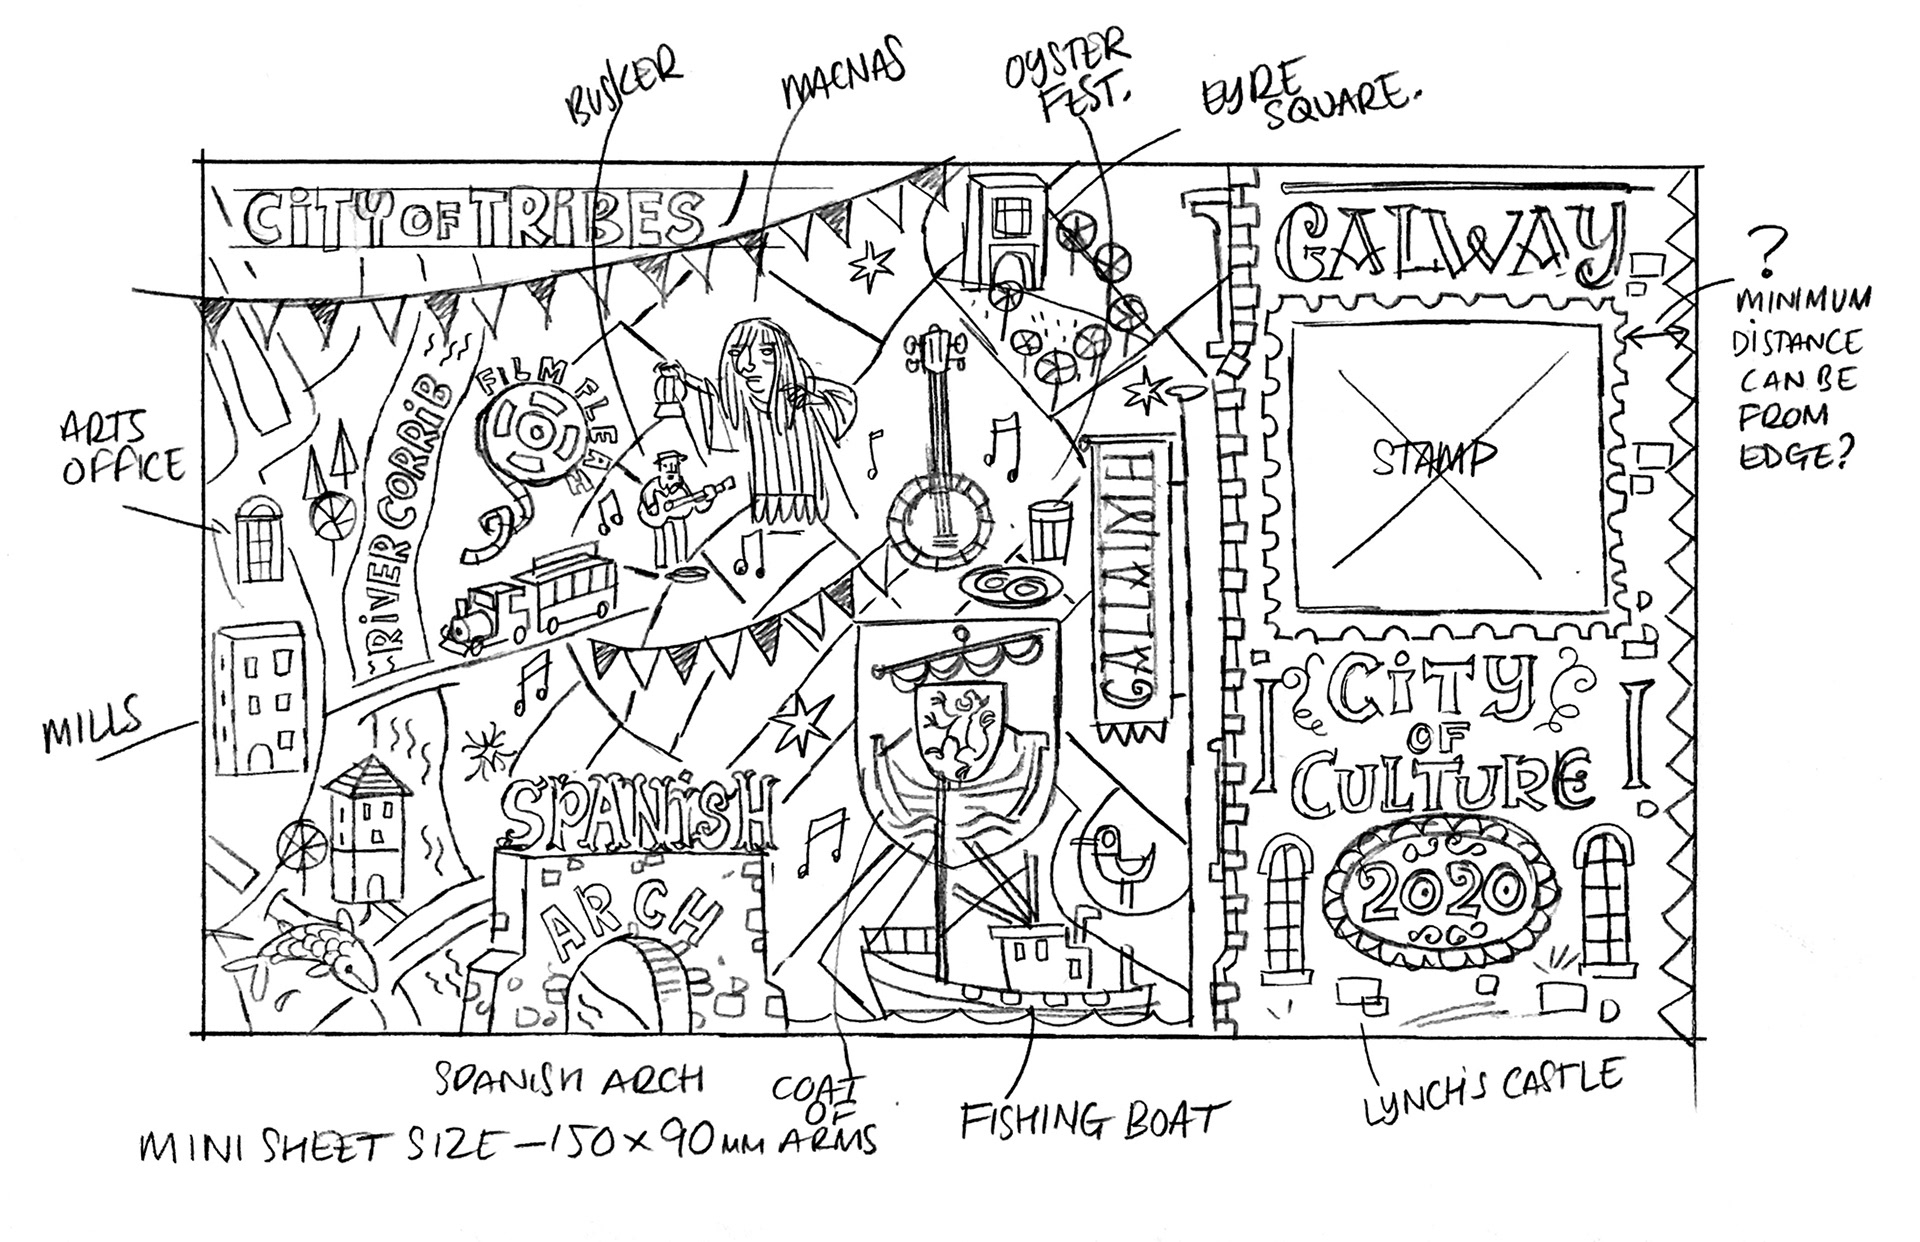 BUSKER
MACNAS
OYSTER
FEST.
EYRE
SQUARE.
CITY OF TRIBES
GALWAY
?
MINIMUM
DISTANCE
CAN BE
FROM
EDGE?
ARTS
OFFICE
RIVER CORRIB
FILM FLEAH
GALLAIMH
STAMP
MILLS
CITY
OF
CULTURE
2020
SPANISH
ARCH
SPANISH ARCH
COAT
OF
ARMS
MINI SHEET SIZE - 150 x 90mm
FISHING BOAT
LYNCH'S CASTLE